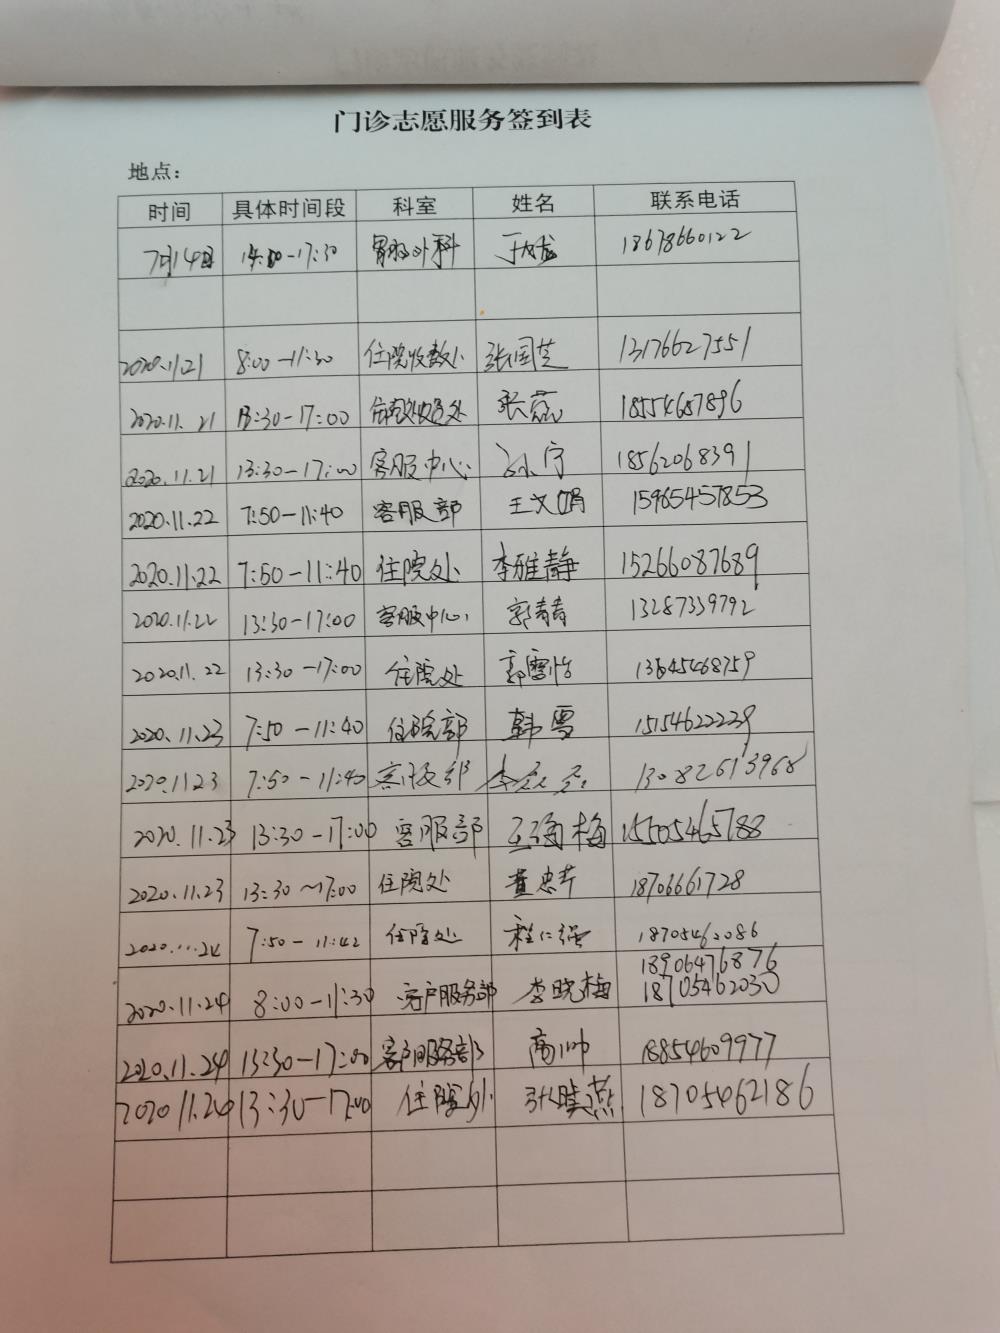 门诊志愿服务签到表
地点：
时间 具体时间段 科室 姓名 联系电话
7月14日 14:00-17:30 外科 18678660122
2020.11.21 8:00-11:30 住院收款处 张国芝 13176627551
2020.11.21 13:30-17:00 张蕊 18554687896
2020.11.21 13:30-17:00 客服中心 孙宁 18562068391
2020.11.22 7:50-11:40 客服部 王文娟 15965457853
2020.11.22 7:50-11:40 住院处 李雅静 15266087689
2020.11.22 13:30-17:00 客服中心 郭青青 13287339792
2020.11.22 13:30-17:00 住院处 郭雪怡 13645468759
2020.11.23 7:50-11:40 住院部 韩雪 15154622239
2020.11.23 7:50-11:40 客服部 13082613968
2020.11.23 13:30-17:00 客服部 王海梅 15505465788
2020.11.23 13:30~17:00 住院处 董忠芹 18706661728
7:50-11:42 住院处 程仁强 18705462086
18906476876
2020.11.24 8:00-11:30 客户服务部 李晓梅 18705462030
2020.11.24 13:30-17:00 客户服务部 高帅 18854609977
2020 11.24 13:30-17:00 住院处 18705462186